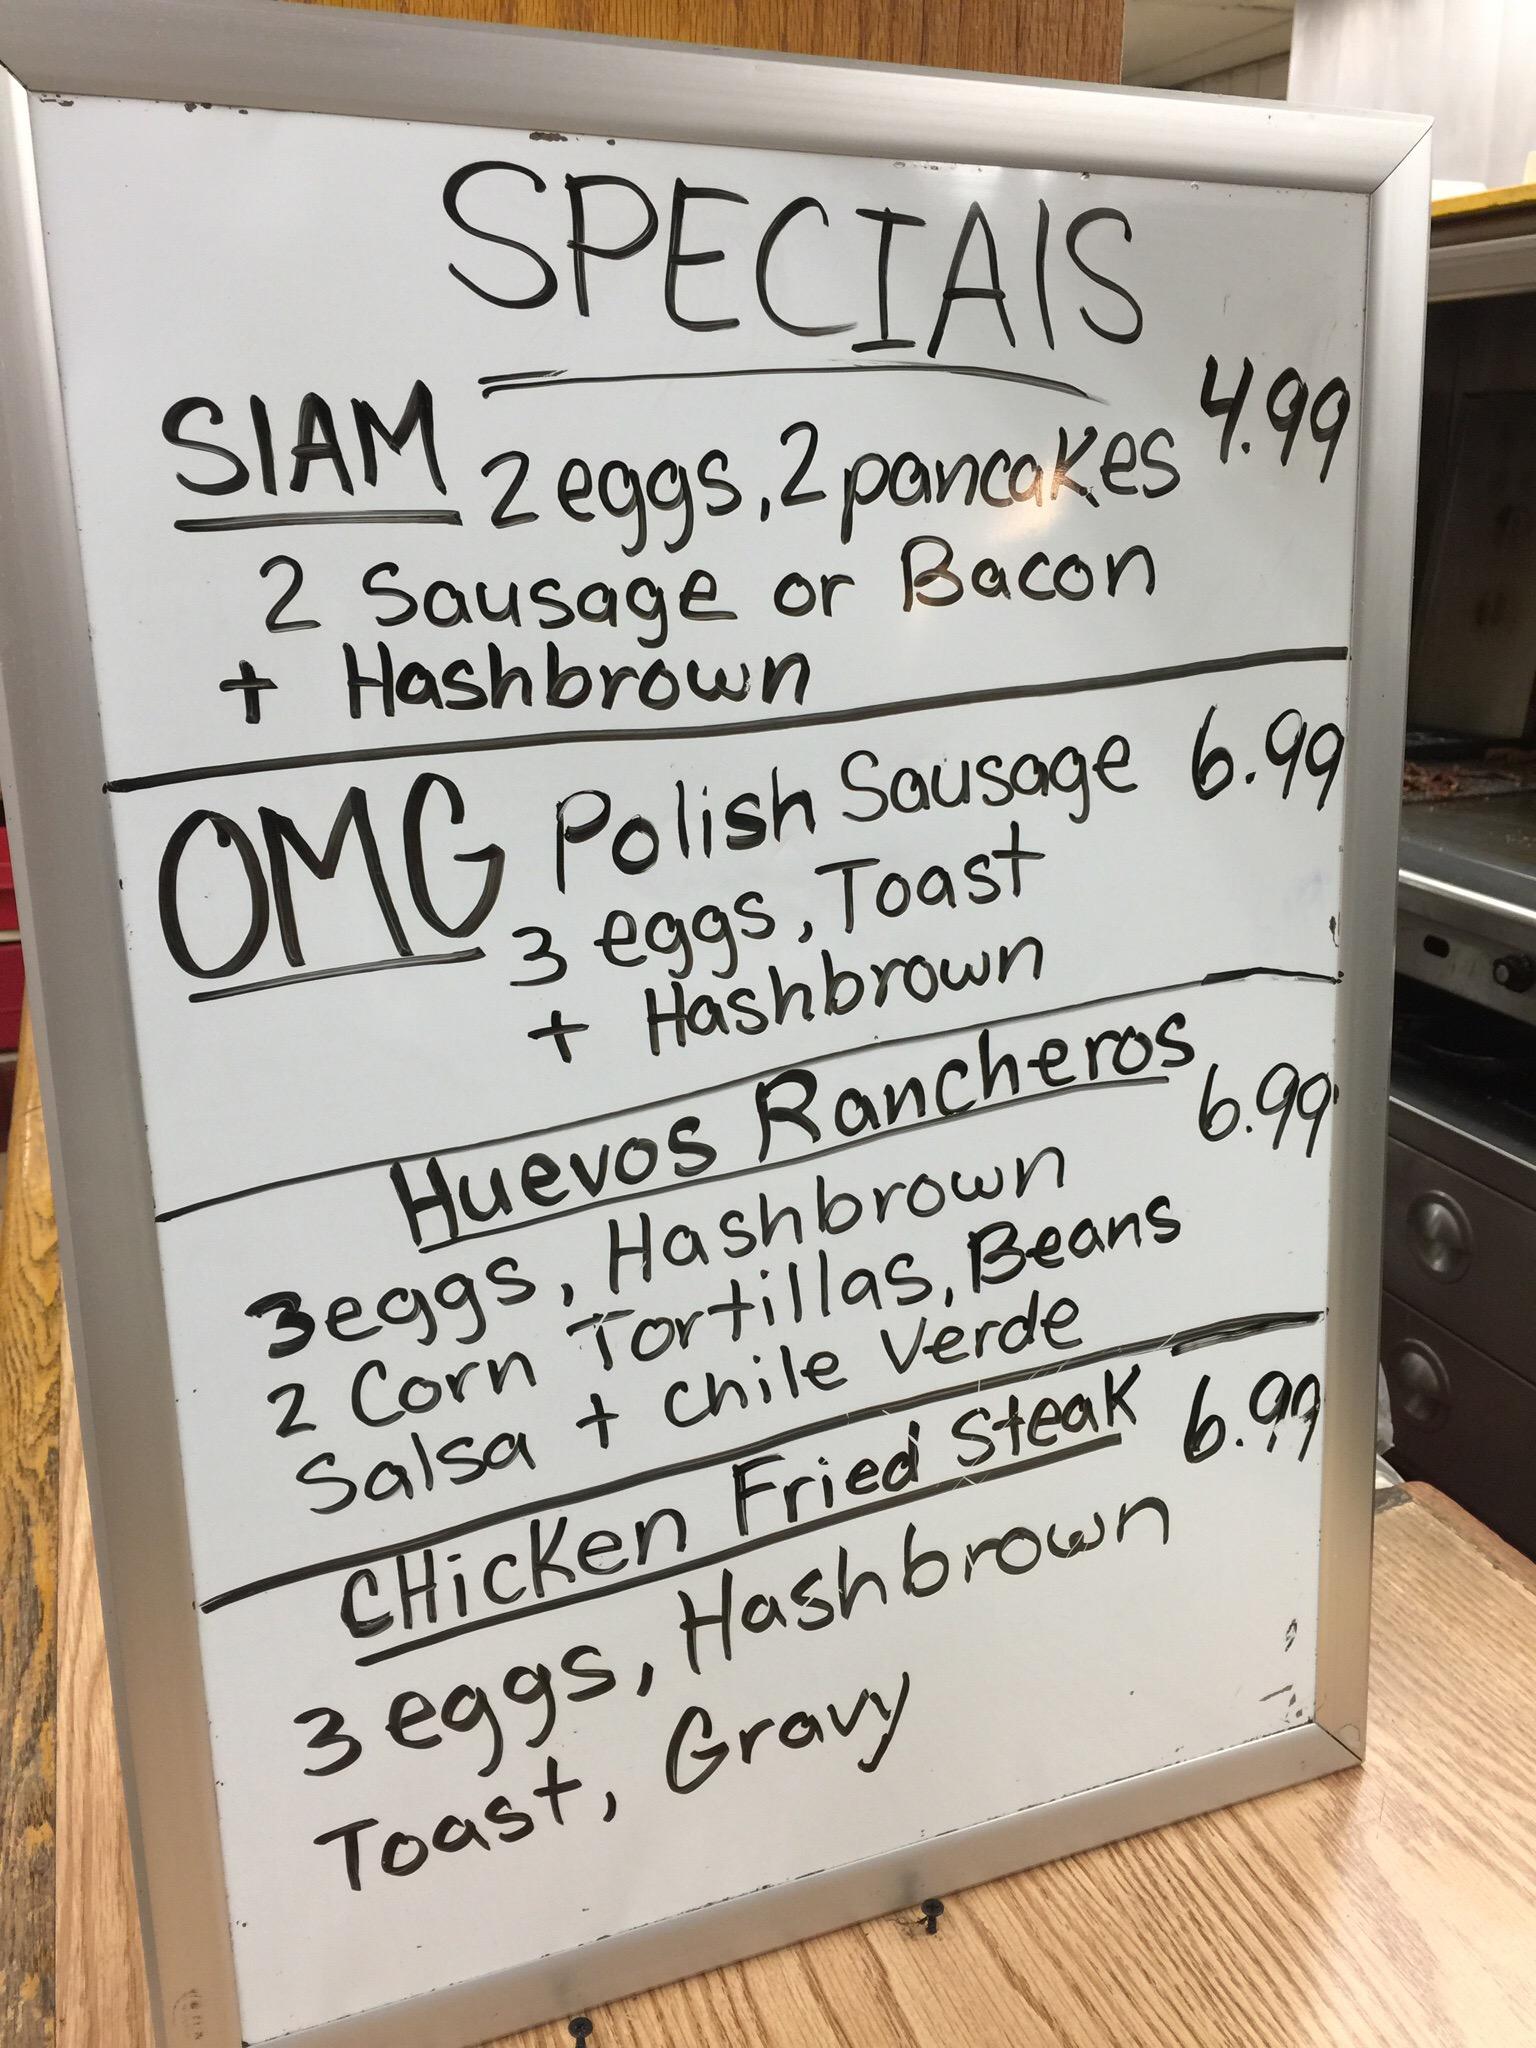 SPECIAlS
SlAM 2 eggs, 2 pancakes 4.99
2 Sausage or Bacon
+ Hashbrown
OMG Polish Sausage 6.99
3 eggs, Toast
+ Hashbrown
Huevos Rancheros 6.99
3 eggs, Hashbrown
2 Corn Tortillas, Beans
Salsa + Chile Verde
CHicKen Fried SteaK 6.99
3 eggs, Hashbrown
Toast, Gravy